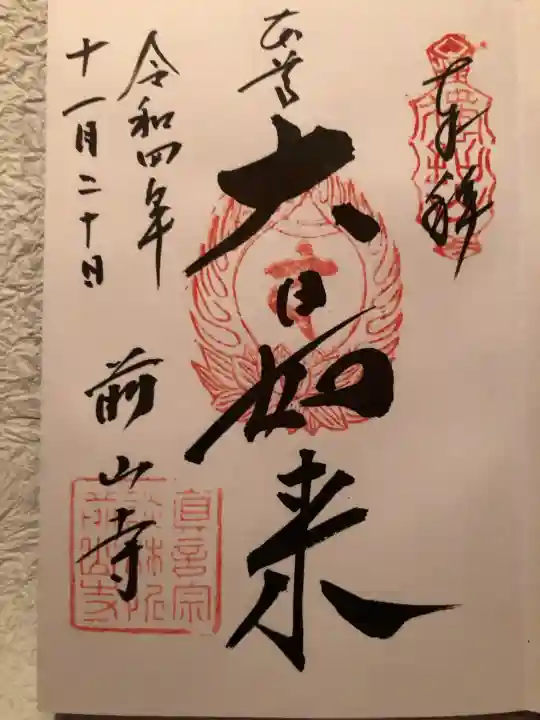 奉拝
本尊
大日如来
令和四年
十一月二十日
前山寺
真言宗
前山寺